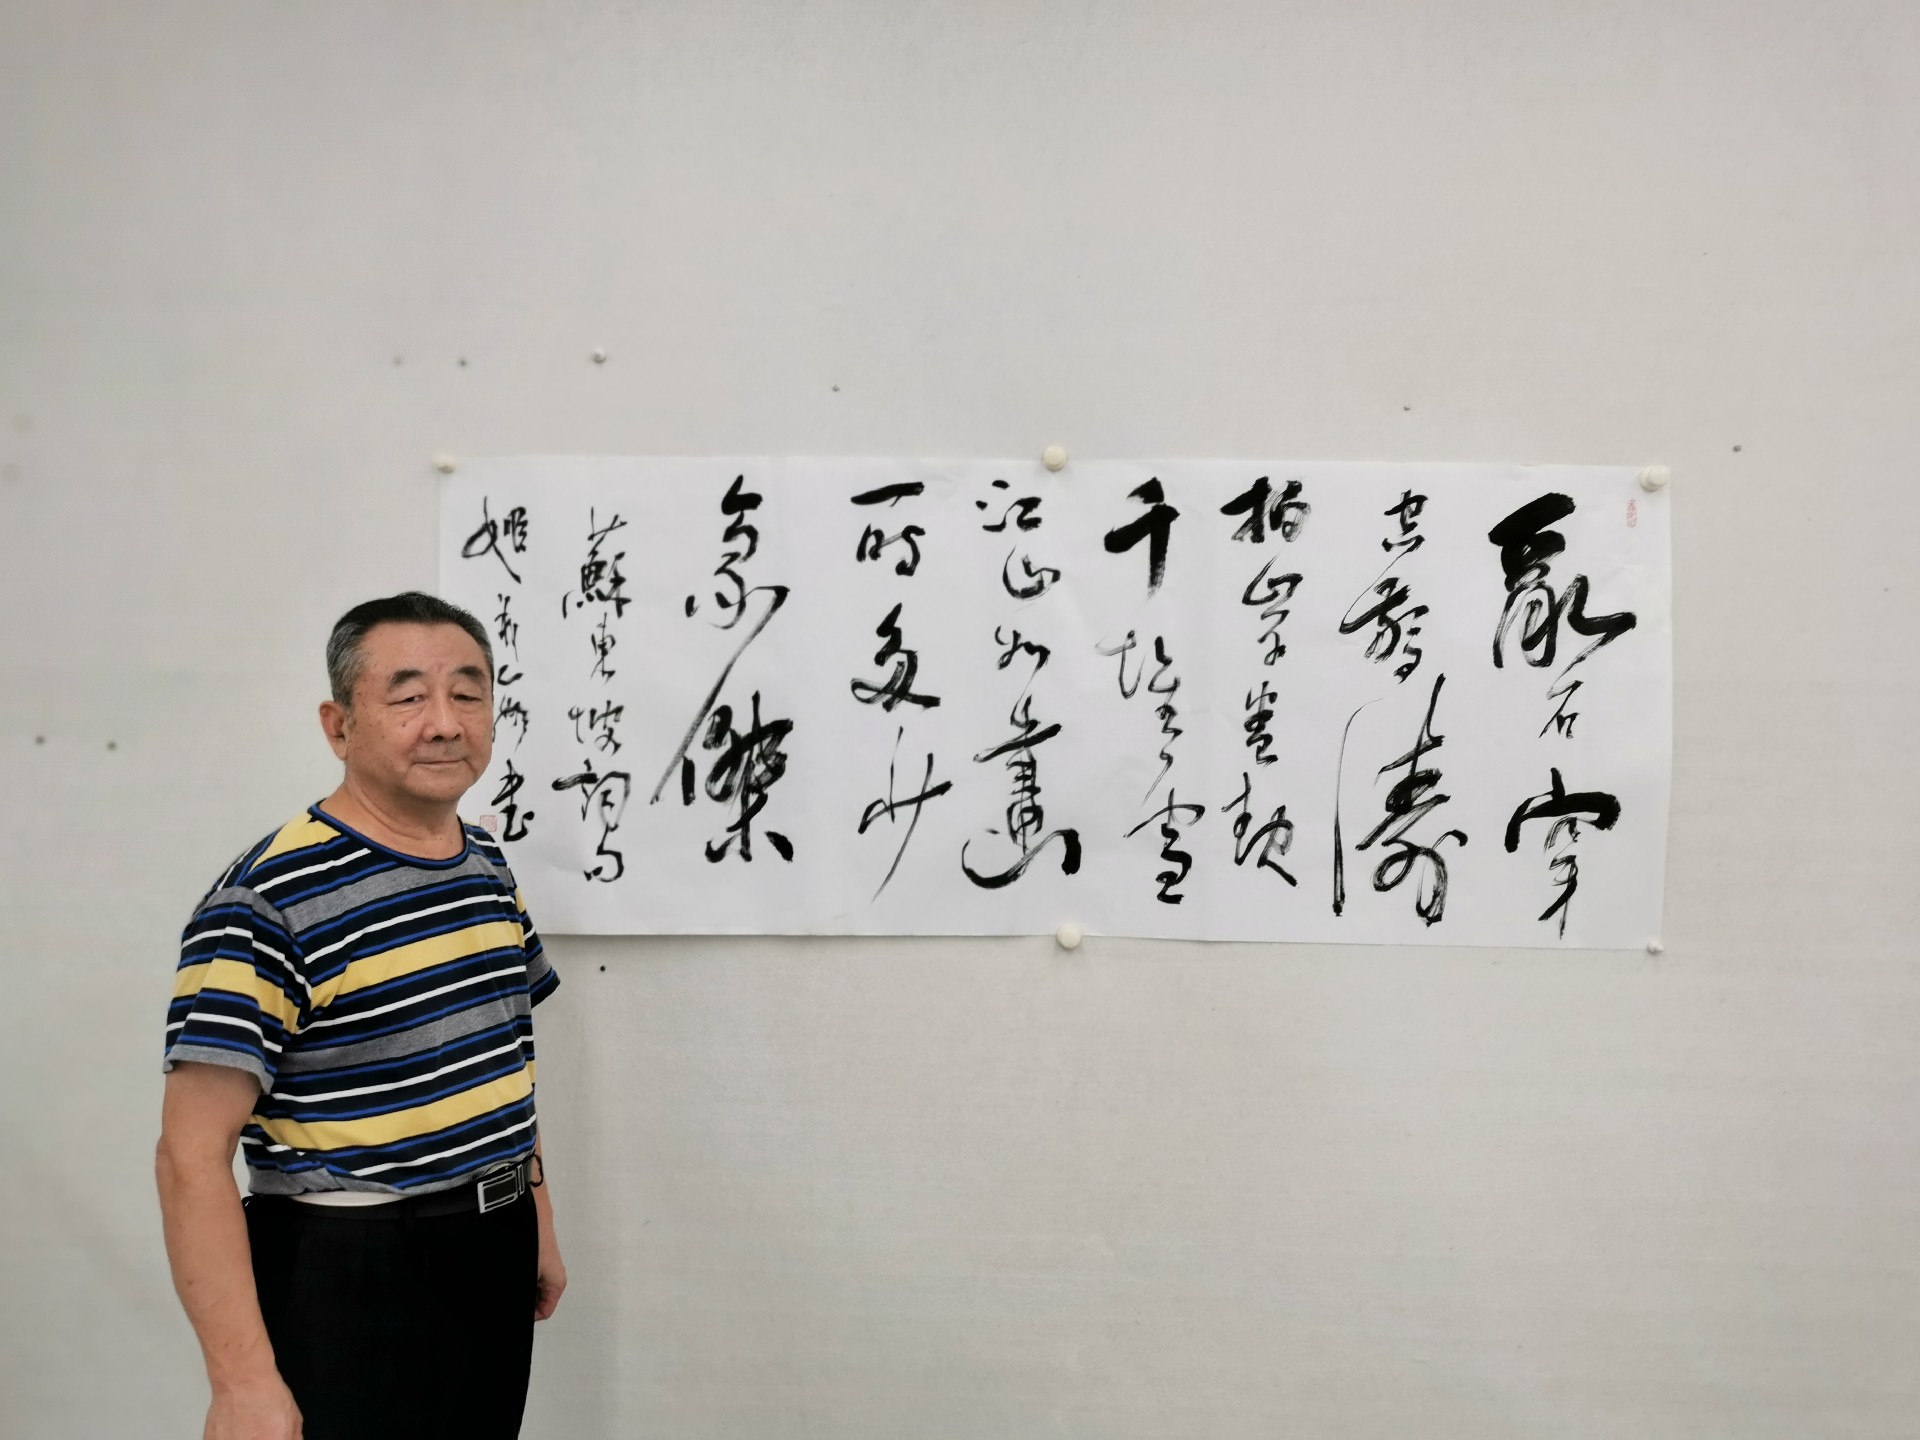 亂石穿
空驚濤
拍岸卷起
千堆雪
江山如畫
一時多少
豪傑
蘇東坡詞句
書